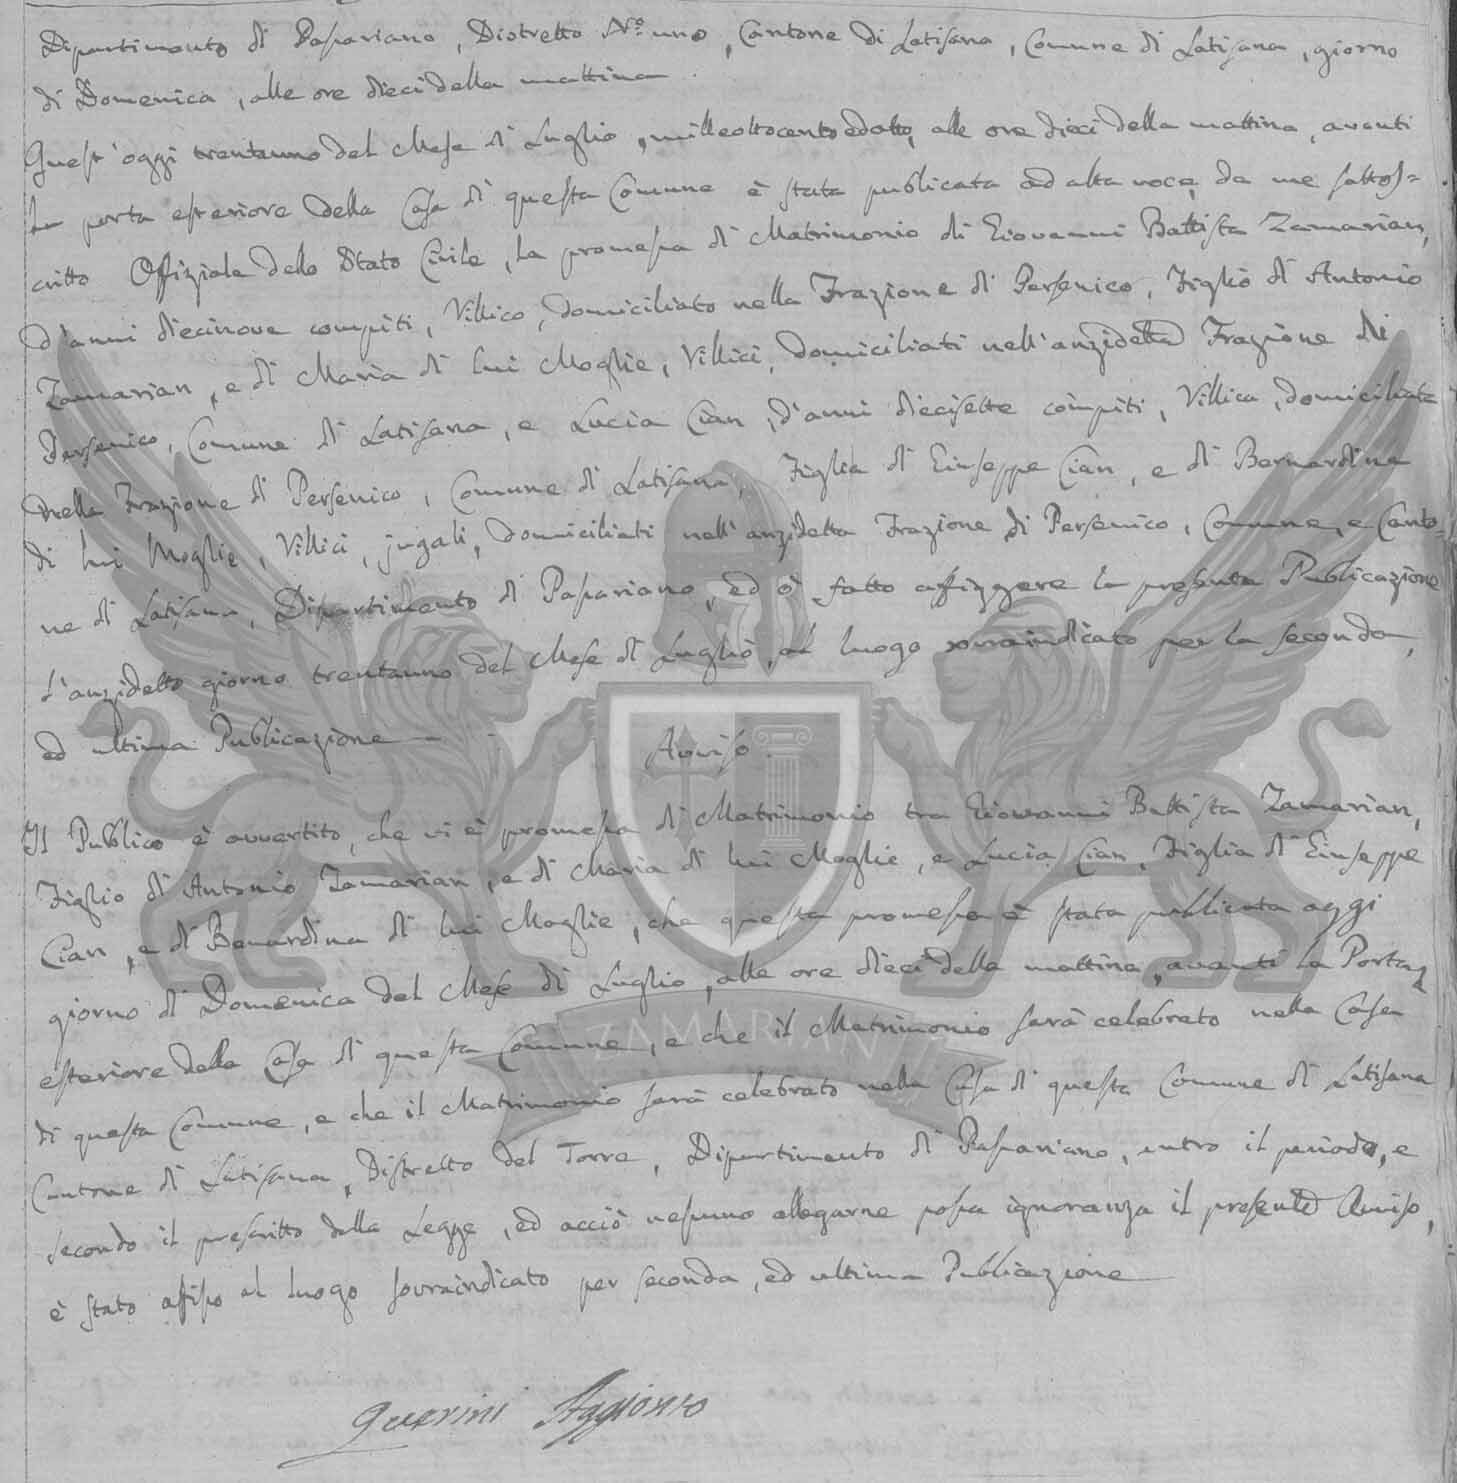 Dipartimento di Passariano, Distretto N.º uno, Cantone di Latisana, Comune di Latisana, giorno
di Domenica, alle ore dieci della mattina.
Quest'oggi trentauno del Mese di Luglio, milleottocentoedotto, alle ore dieci della mattina, avanti
la porta esteriore della Casa di questa Comune è stata publicata ad alta voce da me sottos=
critto Offiziale dello Stato Civile, la promessa di Matrimonio di Giovanni Battista Zamarian,
d'anni diecinove compiti, Villico, domiciliato nella Frazione di Persenico, Figlio di Antonio
Zamarian, e di Maria di lui Moglie, Villici, domiciliati nell'anzidetta Frazione di
Persenico, Comune di Latisana, e Lucia Cian, d'anni diecisette compiti, Villica, domiciliata
nella Frazione di Persenico, Comune di Latisana, Figlia di Giuseppe Cian, e di Bernardina
di lui Moglie, Villici, jugali, domiciliati nell'anzidetta Frazione di Persenico, Comune, e Canto=
ne di Latisana, Dipartimento di Passariano, ed ò fatto affiggere la presente Publicazione
l'anzidetto giorno trentauno del Mese di Luglio, al luogo sovraindicato per la seconda,
ed ultima Publicazione
Avviso.
Il Publico è avvertito, che vi è promessa di Matrimonio tra Giovanni Battista Zamarian,
Figlio di Antonio Zamarian, e di Maria di lui Moglie, e Lucia Cian, Figlia di Giuseppe
Cian, e di Benardina di lui Moglie, che questa promessa è stata publicata oggi
giorno di Domenica del Mese di Luglio, alle ore dieci della mattina, avanti la Porta
esteriore della Casa di questa Comune, e che il Matrimonio sarà celebrato nella Casa
di questa Comune, e che il Matrimonio sarà celebrato nella Casa di questa Comune di Latisana
Cantone di Latisana, Distretto del Torre, Dipartimento di Passariano, entro il periodo, e
secondo il prescritto dalla Legge, ed acciò nessuno allegarne possa ignoranza il presente Avviso,
è stato affisso al luogo sovraindicato per seconda, ed ultima Publicazione
Querini Aggionto
ZAMARIAN